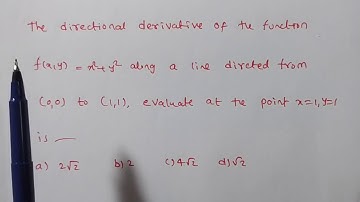 The directional derivative of the function
f(x,y) = x²+y² along a line directed from
(0,0) to (1,1), evaluate at the point x=1, y=1
is __
a) 2√2 b) 2 c) 4√2 d) √2